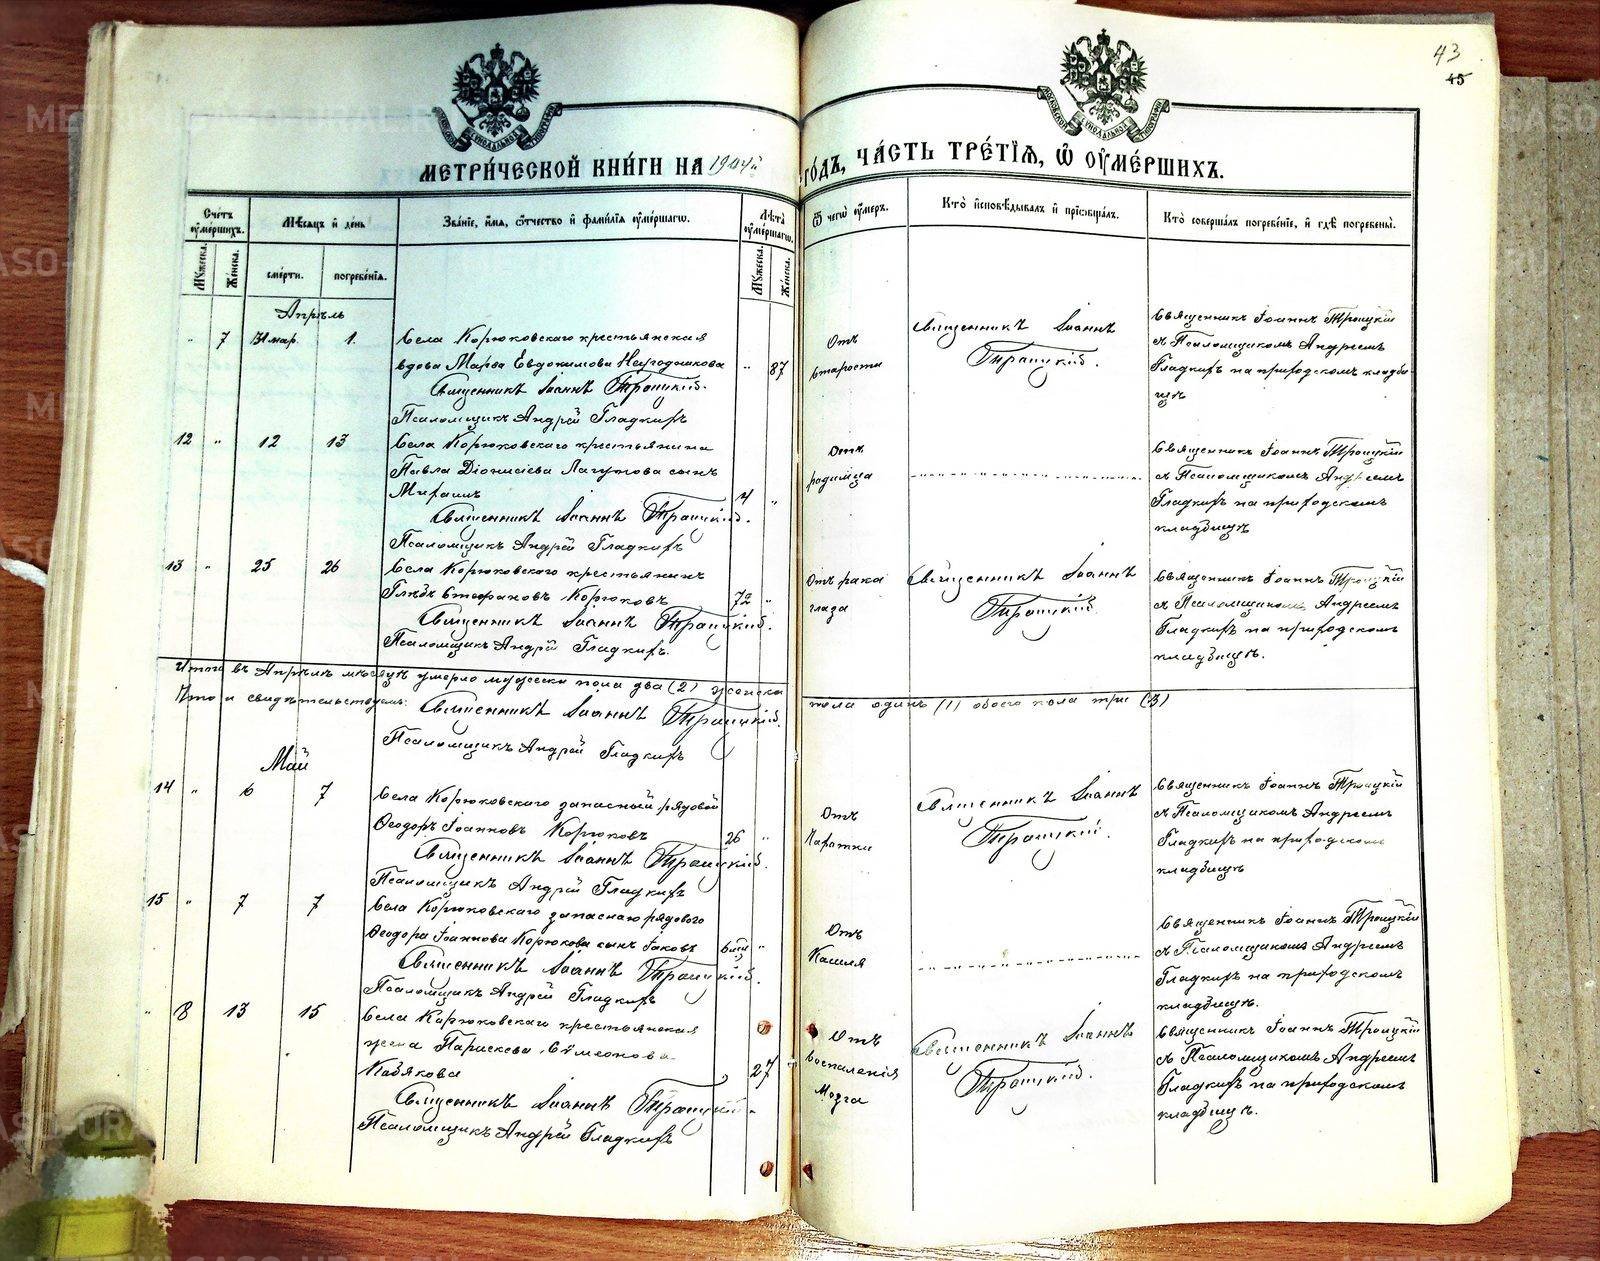 43
45
МЕТРИ́ЧЕСКОЙ КНИ́ГИ НА 1904й
ГО́ДЪ, ЧА́СТЬ ТРЕ́ТІѦ, Ѡ҆ ОУ҆МЕ́РШИХЪ.
Сче́тъ оу҆ме́ршихъ.
Мѣ́сѧцъ и҆ де́нь
Зва́нїе, и҆́мѧ, ѻ҆́тчество и҆ фами́лїѧ оу҆ме́ршагѡ.
Лѣ́та оу҆ме́ршагѡ.
Мꙋ́жеска.
Же́нска.
сме́рти.
погребе́нїѧ.
Мꙋ́жеска.
Же́нска.
Ѿ чегѡ̀ оу҆́меръ.
Кто̀ и҆сповѣ́дывалъ и҆ прїѡбща́лъ.
Кто̀ соверша́лъ погребе́нїе, и҆ гдѣ̀ погребены̀.
Апрѣль
" 7 31 мар. 1.
Села Корюковскаго крестьянская
вдова Марѳа Евдокимова Негодникова " 87
Священникъ Іоаннъ Троицкій.
Псаломщикъ Андрей Гладкихъ
Отъ
старости
Священникъ Іоаннъ
Троицкій.
Священникъ Іоаннъ Троицкій
съ Псаломщикомъ Андреемъ
Гладкихъ на приходскомъ кладби-
щѣ
12 " 12 13
Села Корюковскаго крестьянина
Павла Діонисіева Лагунова сынъ
Михаилъ 4 "
Священникъ Іоаннъ Троицкій.
Псаломщикъ Андрей Гладкихъ
Отъ
родимца
Священникъ Іоаннъ Троицкій
съ Псаломщикомъ Андреемъ
Гладкихъ на приходскомъ
кладбищѣ
13 " 25 26
Села Корюковскаго крестьянинъ
Глѣбъ Стефановъ Корюковъ 72 "
Священникъ Іоаннъ Троицкій.
Псаломщикъ Андрей Гладкихъ.
Отъ рака
глаза
Священникъ Іоаннъ
Троицкій.
Священникъ Іоаннъ Троицкій
съ Псаломщикомъ Андреемъ
Гладкихъ на приходскомъ
кладбищѣ.
Итого въ Апрѣлѣ мѣсяцѣ умерло мужеска пола два (2) женска
пола одинъ (1) обоего пола три (3)
Что и свидѣтельствуемъ: Священникъ Іоаннъ Троицкій.
Псаломщикъ Андрей Гладкихъ
Май
14 " 6 7
Села Корюковскаго запасный рядовой
Ѳеодоръ Іоанновъ Корюковъ 26 "
Священникъ Іоаннъ Троицкій.
Псаломщикъ Андрей Гладкихъ
Отъ
Чахотки
Священникъ Іоаннъ
Троицкій.
Священникъ Іоаннъ Троицкій
съ Псаломщикомъ Андреемъ
Гладкихъ на приходскомъ
кладбищѣ
15 " 7 7
Села Корюковскаго запаснаго рядового
Ѳеодора Іоаннова Корюкова сынъ Іаковъ "
Священникъ Іоаннъ Троицкій.
Псаломщикъ Андрей Гладкихъ
Отъ
Кашля
Священникъ Іоаннъ Троицкій
съ Псаломщикомъ Андреемъ
Гладкихъ на приходскомъ
кладбищѣ.
" 8 13 15
Села Корюковскаго крестьянская
жена Параскева Симеонова
Кабакова 27
Священникъ Іоаннъ Троицкій.
Псаломщикъ Андрей Гладкихъ
Отъ
воспаленія
Мозга
Священникъ Іоаннъ
Троицкій.
Священникъ Іоаннъ Троицкій
съ Псаломщикомъ Андреемъ
Гладкихъ на приходскомъ
кладбищѣ.